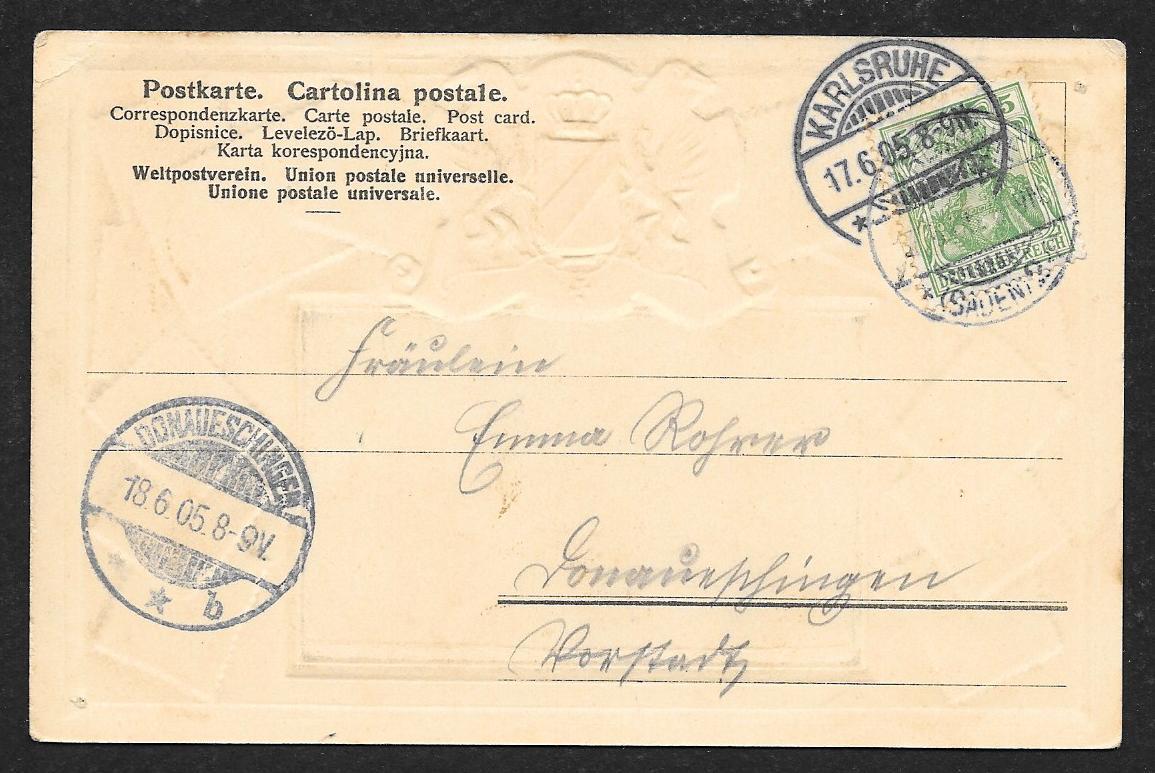 Postkarte. Cartolina postale.
Correspondenzkarte. Carte postale. Post card.
Dopisnice. Levelező-Lap. Briefkaart.
Karta korespondencyjna.
Weltpostverein. Union postale universelle.
Unione postale universale.
KARLSRUHE
17.6.05.8-9N.
5
DEUTSCHES REICH
(BADEN)
Fräulein
Emma Rohrer
DONAUESCHINGEN
18.6.05.8-9V.
* b
Donaueschingen
Vorstadt